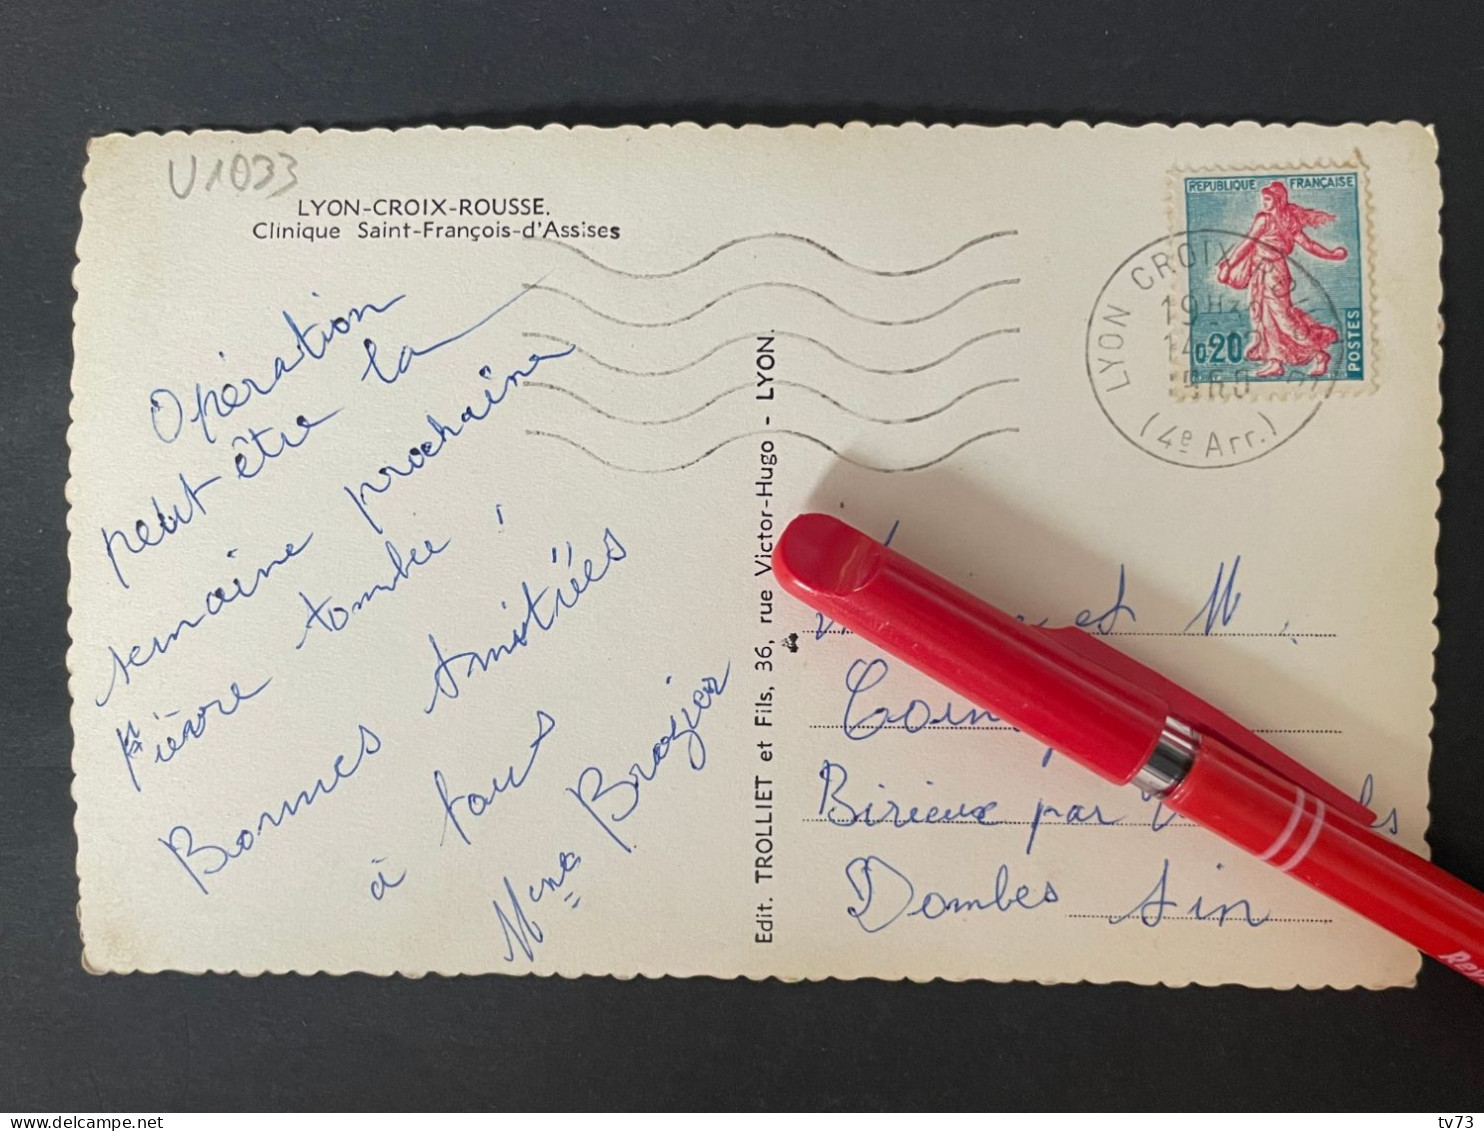 U1033
LYON-CROIX-ROUSSE.
Clinique Saint-François-d'Assises
Opération
peut-être la
semaine prochaine
fièvre tombée !
Bonnes Amitiées
à tous
Mme Brazier
Edit. TROLLIET et Fils, 36, rue Victor-Hugo - LYON.
RÉPUBLIQUE FRANÇAISE
0,20
POSTES
LYON CROIX
19H30
(4e Arr.)
et M.
Birieux par
Dombes Ain
delcampe.net
tv73